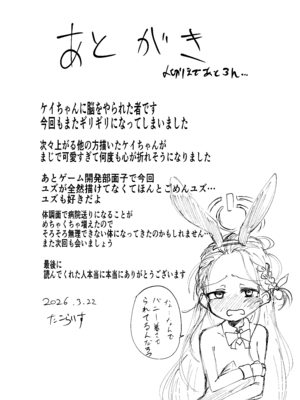 あとがき
ケイちゃんに脳をやられた者です
今回もまたギリギリになってしまいました
次々上がる他の方描いたケイちゃんが
まじで可愛すぎて何度も心が折れそうになりました
あとゲーム開発部面子で今回
ユズが全然描けてなくてほんとごめんユズ…
ユズも好きだよ
体調面で病院送りになることが
めちゃくちゃ増えたので
そろそろ無理できない体になってきたのかもしれません…
また次回も会いましょう
最後に
読んでくれた人本当に本当にありがとうございます
2026.3.22
たこらいす
な…なんで
バニー着させ
られてるんだ私